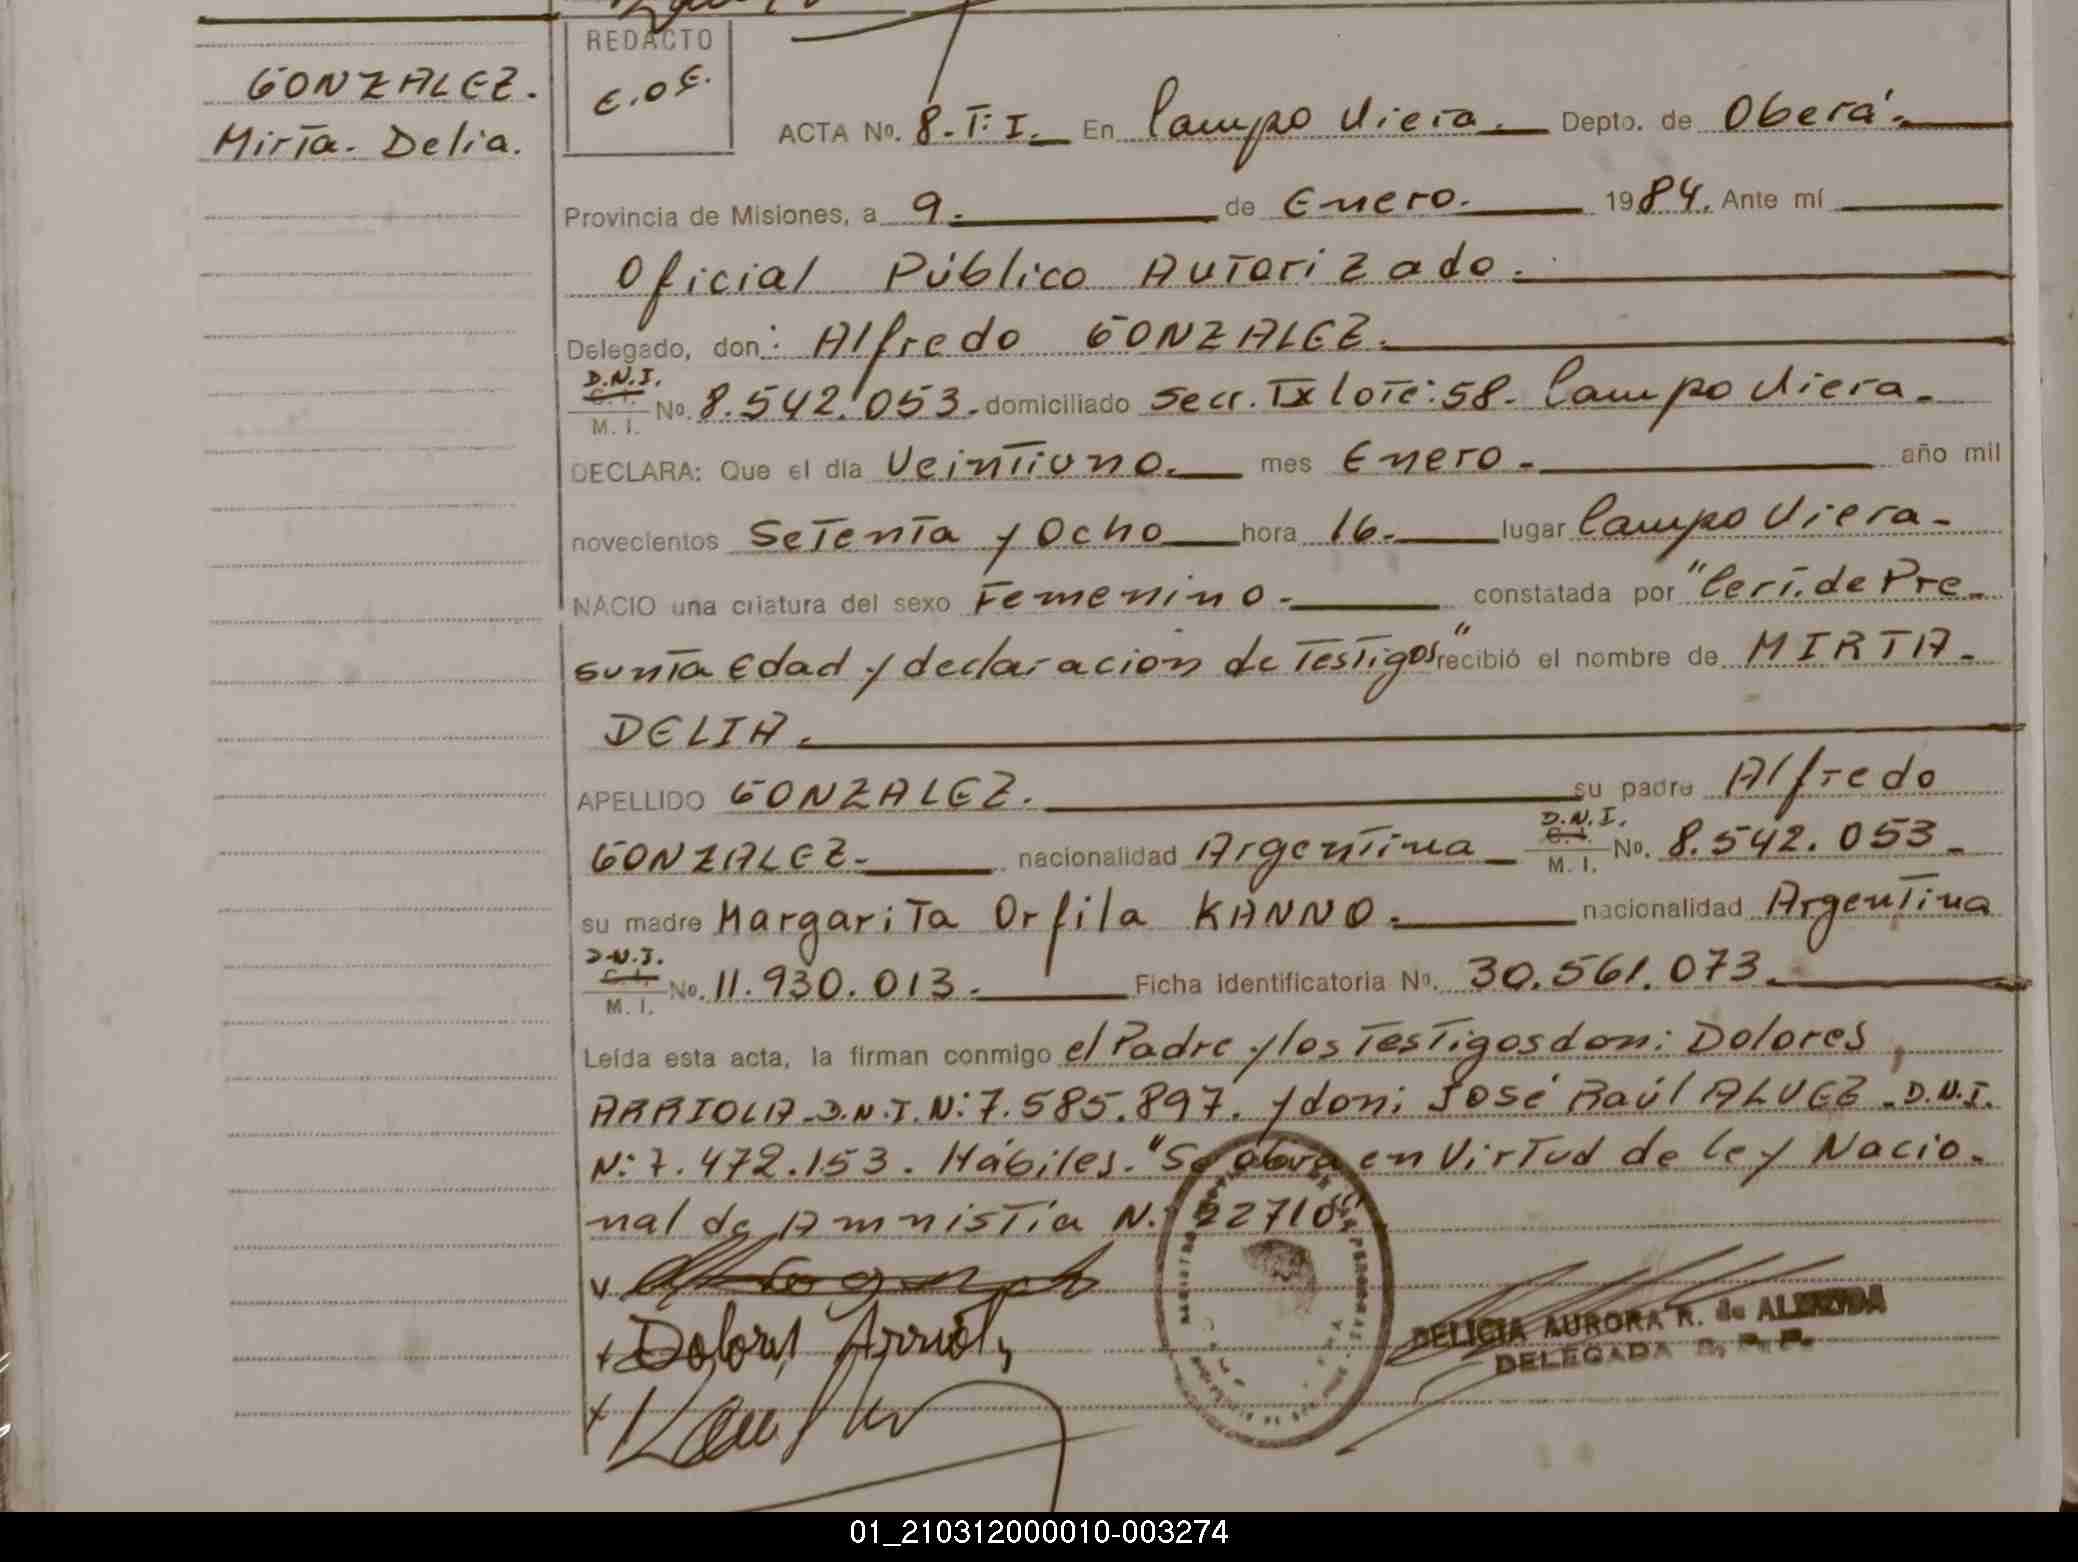 GONZALEZ.
Mirta. Delia.
REDACTO
E.O.E.
ACTA No. 8.T:I. En Campo Viera. Depto. de Oberá.
Provincia de Misiones, a 9. de Enero. 1984. Ante mí
Oficial Público Autorizado.
Delegado, don: Alfredo GONZALEZ.
D.N.I.
C. I.
M. I.
No. 8.542.053. domiciliado Secc. IX lote: 58. Campo Viera.
DECLARA: Que el día Veintiuno. mes Enero. año mil
novecientos Setenta y Ocho hora 16. lugar Campo Viera.
NACIO una criatura del sexo Femenino. constatada por "Certi. de Pre-
sunta Edad y declaracion de Testigos" recibió el nombre de MIRTA.
DELIA.
APELLIDO GONZALEZ. su padre Alfredo
GONZALEZ. nacionalidad Argentina D.N.I. C. I. M. I. No. 8.542.053.
su madre Margarita Orfila KANNO. nacionalidad Argentina
D.N.I.
C. I.
M. I.
No. 11.930.013. Ficha identificatoria No. 30.561.073.
Leída esta acta, la firman conmigo el Padre y los Testigos don: Dolores
ARRIOLA. D.N.I. N: 7.585.897. y don: José Raúl ALVEZ. D.N.I.
N: 7.472.153. Hábiles. "Se obra en Virtud de ley Nacio-
nal de Amnistia N: 22710"
Dolores Arriola
DELICIA AURORA R. de ALMEIDA
DELEGADA R. P. P.
01_210312000010-003274